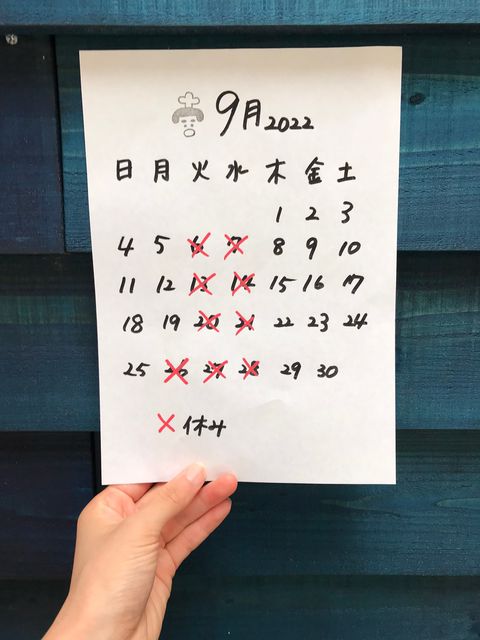 9月2022
日 月 火 水 木 金 土
1 2 3
4 5 6 7 8 9 10
11 12 13 14 15 16 17
18 19 20 21 22 23 24
25 26 27 28 29 30
× 休み